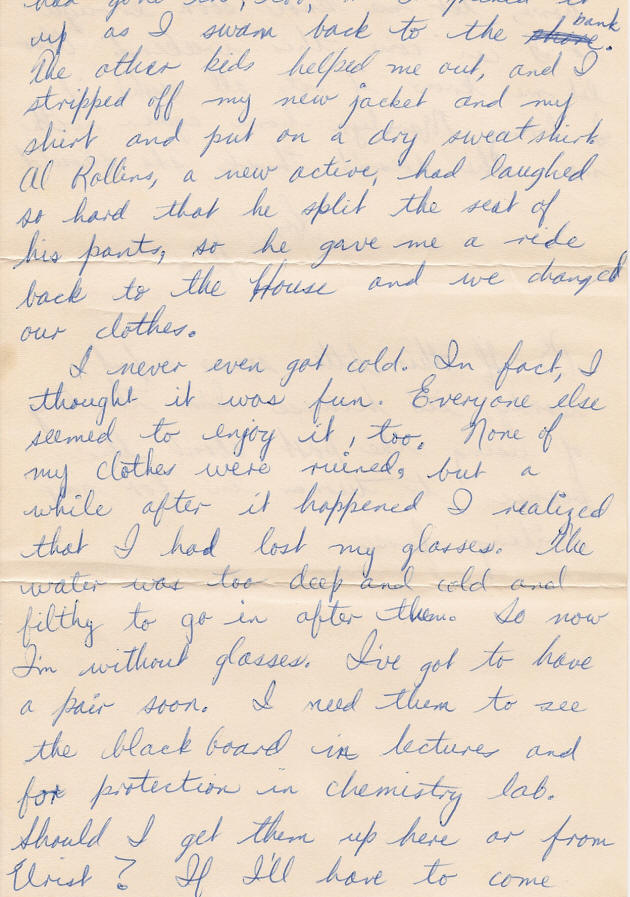 up as I swam back to the shore bank.
The other kids helped me out, and I
stripped off my new jacket and my
shirt and put on a dry sweatshirt.
Al Rollins, a new active, had laughed
so hard that he split the seat of
his pants, so he gave me a ride
back to the House and we changed
our clothes.
I never even got cold. In fact, I
thought it was fun. Everyone else
seemed to enjoy it, too. None of
my clothes were ruined, but a
while after it happened I realized
that I had lost my glasses. The
water was too deep and cold and
filthy to go in after them. So now
I'm without glasses. I've got to have
a pair soon. I need them to see
the blackboard in lectures and
for protection in chemistry lab.
Should I get them up here or from
Urist? If I'll have to come